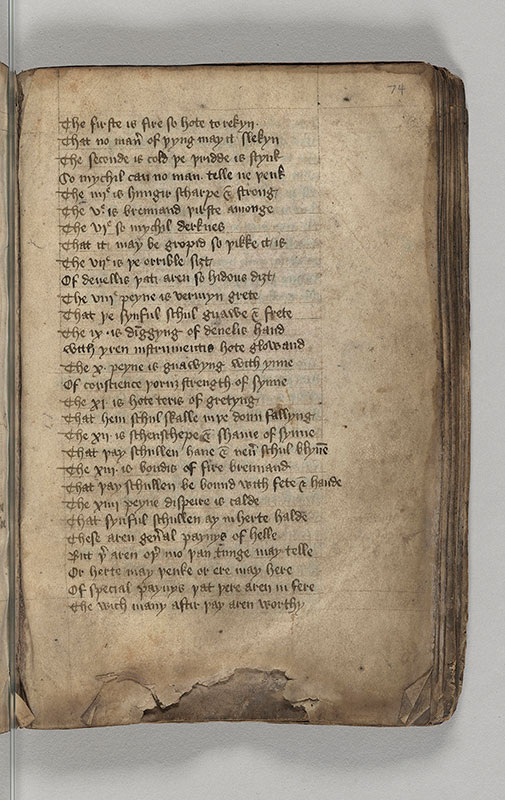 74
The firste is fire so hote to rekyn
That no man̄ of þyng may it slekyn
The seconde is cold þe þridde is stynk
So mychil cau no man telle ne þenk
The iiijᵉ is hungir scharpe & strong
The vᵉ is brennand þirste amonge
The vjᵉ so mychil derknes
That it may be gropid so þikke it is
The vijᵉ is þe orrible siȝt
Of deuellis þat aren so hidous diȝt
The viijᵉ peyne is vermyn grete
That þe synful schul gnawe & frete
The ix is dīggyng of deuelis hand
with yren instrumentis hote glowand
The x peyne is gnawyng with ynne
Of conscience þoruȝ strength of synne
The xi is hote teris of gretyng
That hem schul skalle in þe doun fallyng
The xii is schenschepe & shame of synne
That þay schullen haue & neū schul blynē
The xiii is bondis of fire brennand
That þay schullen be bound with fete & hande
The xiiii peyne dispeire is calde
That synful schullen ay in herte halde
These aren gen̄al paynys of helle
But þ̄ aren oþ̄ mo þan tunge may telle
Or herte may þenke or ere may here
Of special paynys þat þere aren in fere
The wich many aftir þay aren worthy